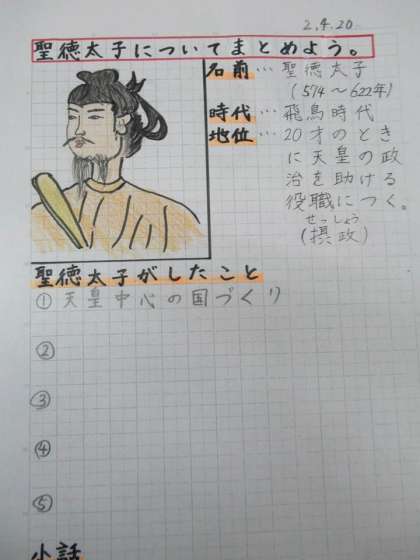 2.4.20
聖徳太子についてまとめよう。
名前…聖徳太子
(574～622年)
時代…飛鳥時代
地位…20才のとき
に天皇の政
治を助ける
役職につく。
せっしょう
(摂政)
聖徳太子がしたこと
①天皇中心の国づくり
②
③
④
⑤
小話